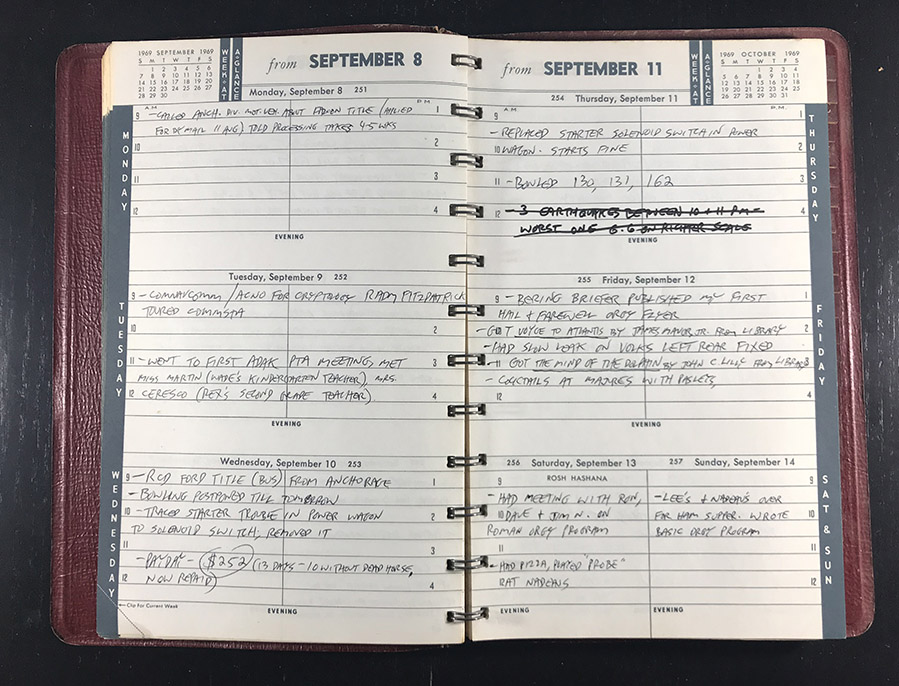 1969 SEPTEMBER 1969
S M T W T F S
1 2 3 4 5 6
7 8 9 10 11 12 13
14 15 16 17 18 19 20
21 22 23 24 25 26 27
28 29 30
WEEK·AT
A·GLANCE
from SEPTEMBER 8
MONDAY
Monday, September 8 251
AM PM
9 -CALLED ANCH. DIV. MOT. VEH. ABOUT TITLE (MAILED 1
FOR MAIL 11 AUG) TOLD PROCESSING TAKES 4-5 WKS
10 2
11 3
12 4
EVENING
TUESDAY
Tuesday, September 9 252
9 -COMNAVCOMM/ACNO FOR CRYPTOLOGY RADM FITZPATRICK
TOURED COMMSTA
10 2
11 -WENT TO FIRST ADAK PTA MEETING, MET 3
MISS MARTIN (WADE'S KINDERGARTEN TEACHER), MRS.
12 CERESCO (REX'S SECOND GRADE TEACHER) 4
EVENING
WEDNESDAY
Wednesday, September 10 253
9 -RCD FORD TITLE (BUS) FROM ANCHORAGE 1
-BOWLING POSTPONED TILL TOMORROW
10 -TRACED STARTER TROUBLE IN POWER WAGON 2
TO SOLENOID SWITCH, REMOVED IT
11 3
-PAYDAY- $252 (13 DAYS - 10 WITHOUT DEAD HORSE,
12 NOW REPAID) 4
←Clip For Current Week
EVENING
from SEPTEMBER 11
WEEK·AT
A·GLANCE
1969 OCTOBER 1969
S M T W T F S
1 2 3 4
5 6 7 8 9 10 11
12 13 14 15 16 17 18
19 20 21 22 23 24 25
26 27 28 29 30 31
THURSDAY
254 Thursday, September 11
AM P.M.
9 1
-REPLACED STARTER SOLENOID SWITCH IN POWER
10 WAGON. STARTS FINE 2
11 -BOWLED 130, 131, 162 3
12 -3 EARTHQUAKES BETWEEN 10 + 11 PM- 4
WORST ONE 6.6 ON RICHTER SCALE
EVENING
FRIDAY
255 Friday, September 12
9 -BERING BRIEFER PUBLISHED MY FIRST 1
HAIL & FAREWELL ORGY FLYER
-GOT VOYGE TO ATLANTIS BY JAMES MAVOR, JR. FROM LIBRARY 2
-HAD SLOW LEAK ON VOLKS LEFT REAR FIXED
11 GOT THE MIND OF THE DOLPHIN BY JOHN C LILLY FROM LIBRARY 3
-COCKTAILS AT WITH
12 4
EVENING
SAT & SUN
256 Saturday, September 13
ROSH HASHANA
9
-HAD MEETING WITH RON,
10 DAVE & JIM N. ON
ROMAN ORGY PROGRAM
11
-HAD PIZZA, PLAYED "PROBE"
12 AT NADEAUS
EVENING
257 Sunday, September 14
9
-LEE'S & NADEAU'S OVER
FOR HAM SUPPER. WROTE 10
BASIC ORGY PROGRAM
11
12
EVENING